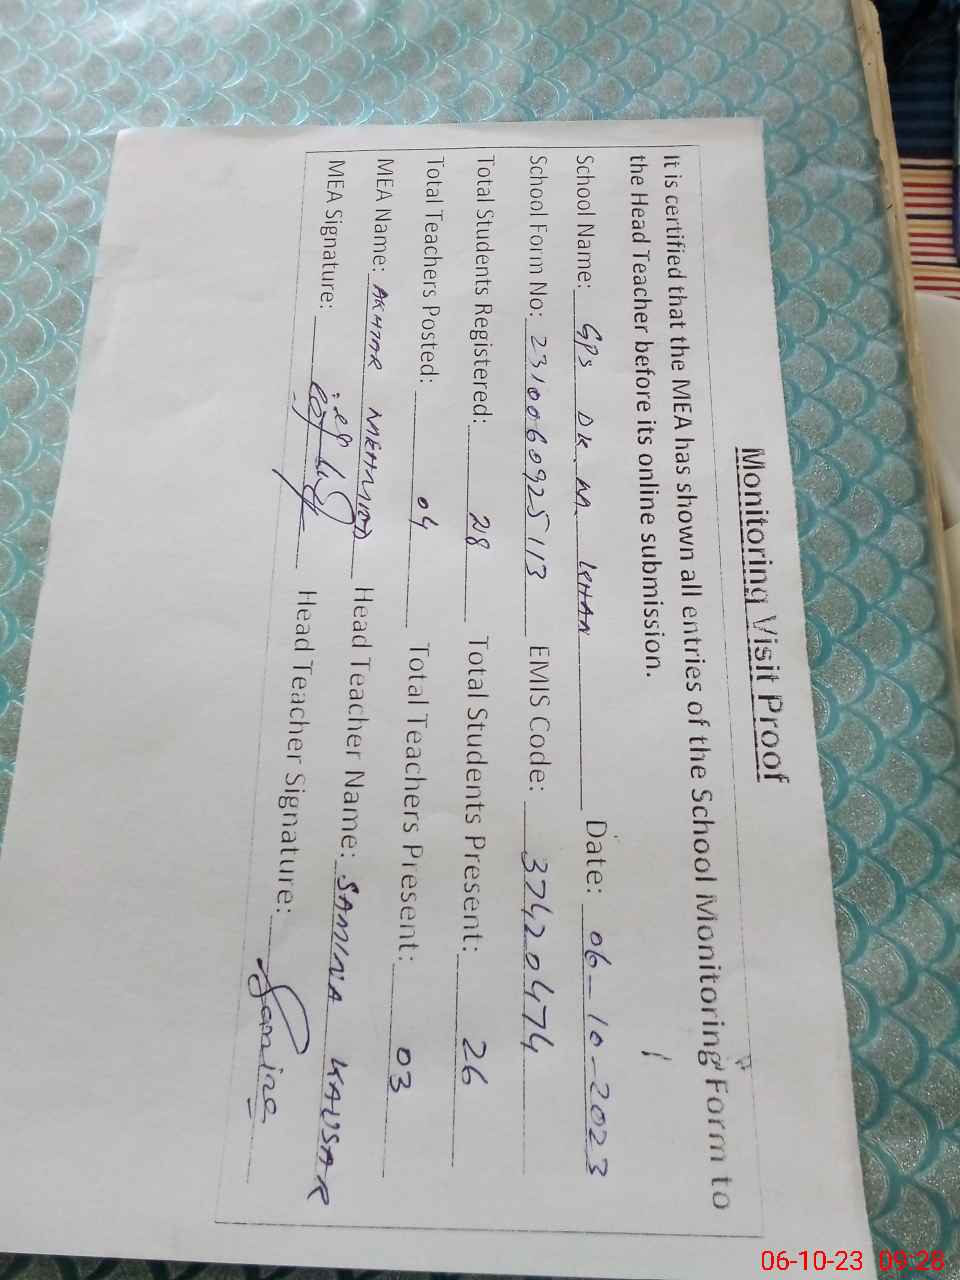 Monitoring Visit Proof
It is certified that the MEA has shown all entries of the School Monitoring Form to
the Head Teacher before its online submission.
School Name: GPS DK NA KHAN Date: 06-10-2023
School Form No: 2310060925113 EMIS Code: 37420474
Total Students Registered: 28 Total Students Present: 26
Total Teachers Posted: 04 Total Teachers Present: 03
MEA Name: AKHTAR MEHMOOD Head Teacher Name: SAMINA KAUSAR
MEA Signature: Head Teacher Signature: Samina
06-10-23 09:28